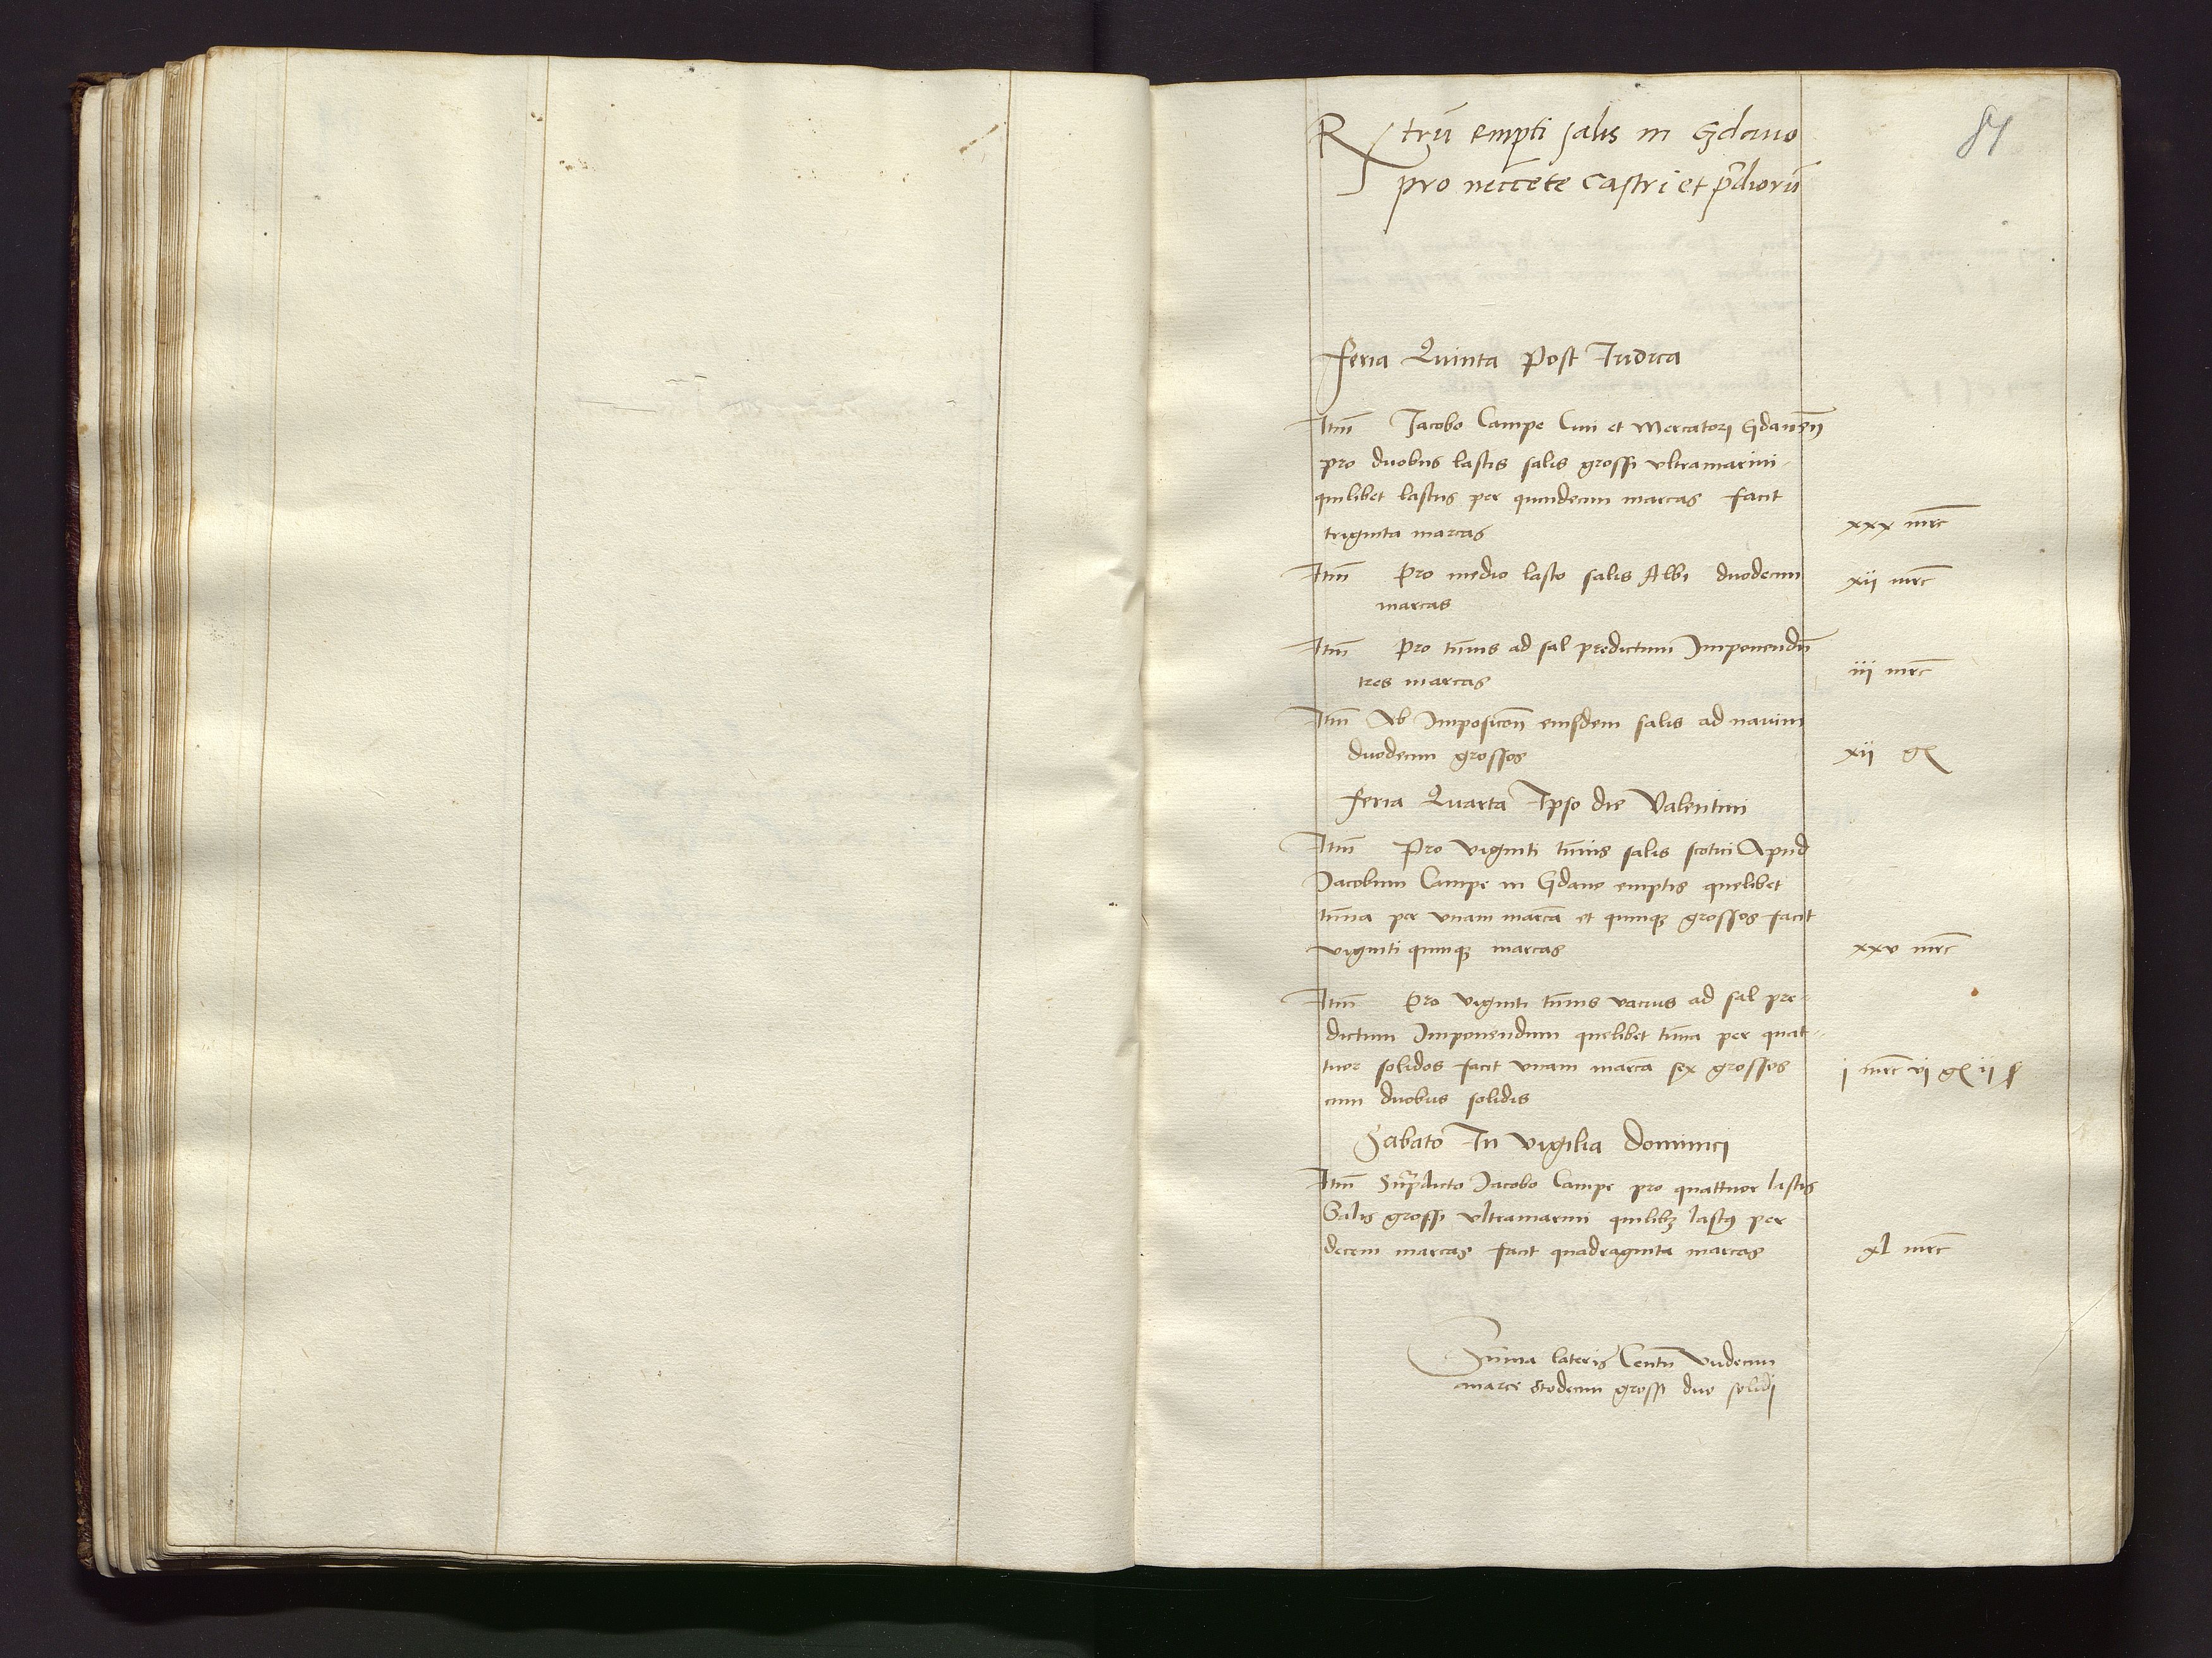 87
Rtrū empti salis in Gdano
pro nēccete castri et p̄diorū
Feria Quinta Post Iudica
Itm̄ Jacobo Campe Ciui et Mercatori Gdanen̄
pro duobus lastis salis grossi vltramarini
quilibet lastus per quindecim marcas facit
triginta marcas xxx mrc̄
Itm̄ Pro medio lasto salis Albi duodecim xii mrc̄
marcas
Itm̄ Pro tūnis ad sal predictum Imponendū
tres marcas iii mrc̄
Itm̄ Ab Imposicōn eiusdem salis ad nauim
duodecim grossos xii gr
Feria Quarta Ipso die Valentini
Itm̄ Pro viginti tūnis salis scotici Apud
Jacobum Campe in Gdano emptis quelibet
tūna per vnam marcā et quinqꝫ grossos facit
viginti quinqꝫ marcas xxv mrc̄
Itm̄ Pro viginti tūnis vacuis ad sal pre-
dictum Imponendum quelibet tūna per quat-
tuor solidos facit vnam marcā sex grossos i mrc̄ vi gr ii s
cum duobus solidis
Sabato In vigilia Dominici
Itm̄ Sup̄dicto Jacobo Campe pro quattuor lastis
Salis grossi vltramarini quilibꝫ lastꝰ per
decem marcas facit quadraginta marcas xl mrc̄
Sūma lateris Centū Vndecim
marce octodecim grossi duo solidi